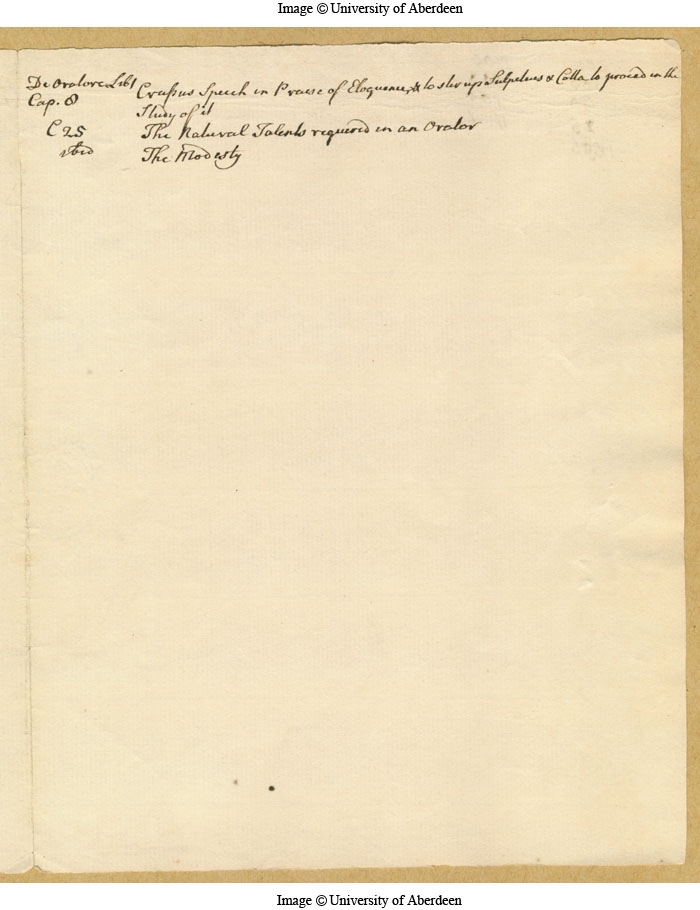 Image © University of Aberdeen
De Oratore Lib 1 Crassus Speech in Praise of Eloquence, & to stir up Sulpitius & Cotta to proceed in the
Cap. 8 Study of it
C 25 The Natural Talents required in an Orator
ibid The Modesty
Image © University of Aberdeen